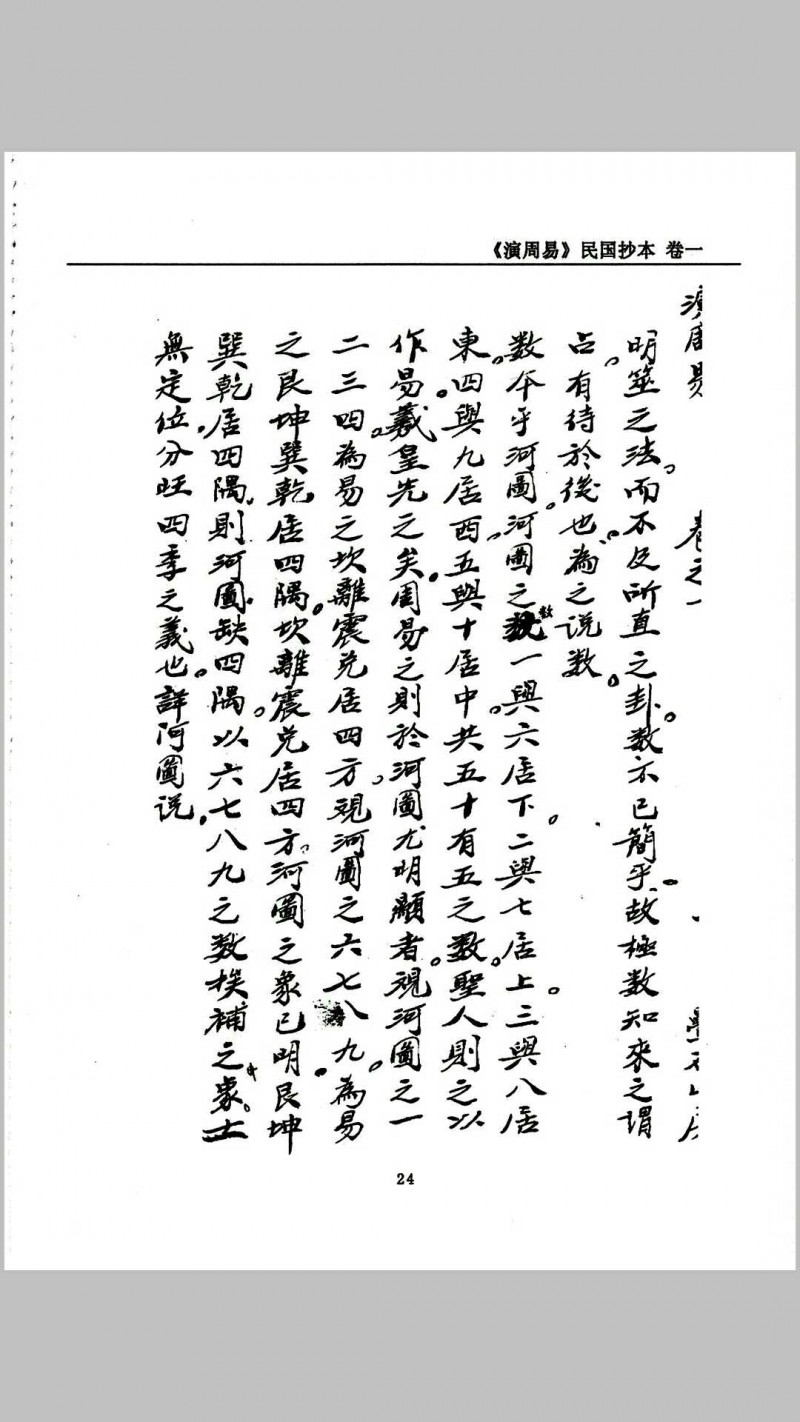 《演周易》民国抄本 卷一
演周易 卷之一
明筮之法。而不及所直之卦。数亦已簡乎。故極数知來之謂
占。有待於後也。為之说数。
数本乎河圖。河圖之数一與六居下。二與七居上。三與八居
東。四與九居西。五與十居中。共五十有五之数。聖人則之以
作易。羲皇先之矣。周易之則於河圖尤明顯者。視河圖之一
二三四為易之坎離震兑居四方。視河圖之六七八九。為易
之艮坤巽乾居四隅。坎離震兑居四方。河圖之象已明。艮坤
巽乾居四隅。則河圖缺四隅。以六七八九之数挨補之象。土
無定位。分旺四季之義也。詳河圖说。
24